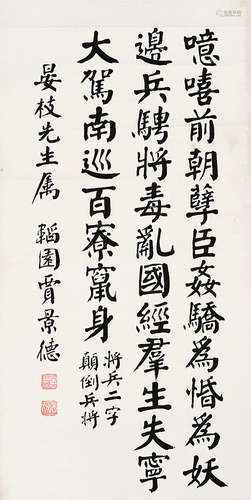 噫嘻前朝孽臣姦驕為惛為妖
邊兵騁將毒亂國經羣生失寧
大駕南巡百寮竄身
將兵二字
顛倒兵將
晏枝先生属
韜園賈景德